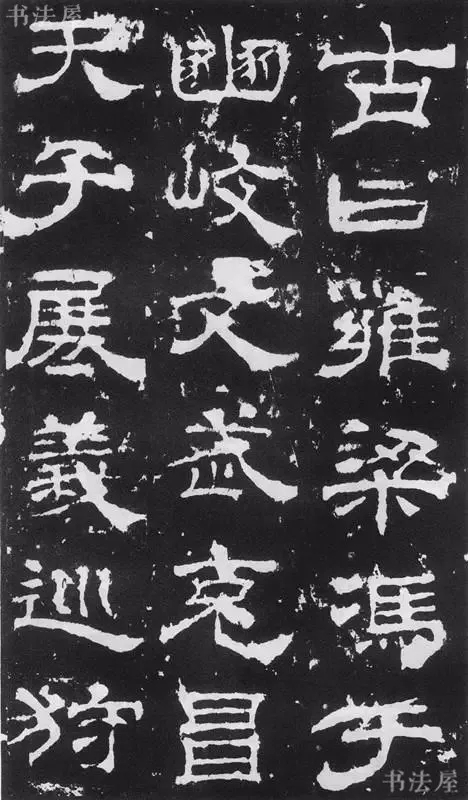 古曰雍梁馮于
豳岐文武克昌
天子展義巡狩
书法屋
书法屋